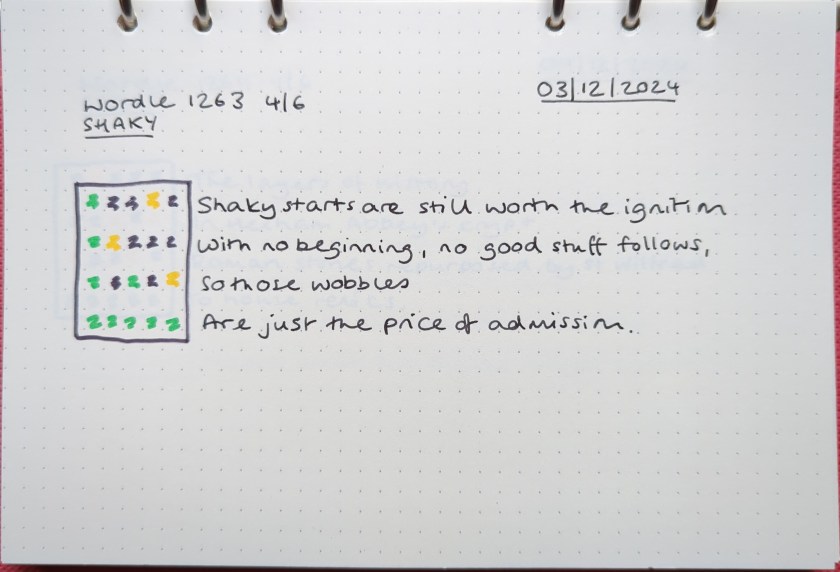 Wordle 1263 4/6
03/12/2024
SHAKY
Shaky starts are still worth the ignition
With no beginning, no good stuff follows,
So those wobbles
Are just the price of admission.